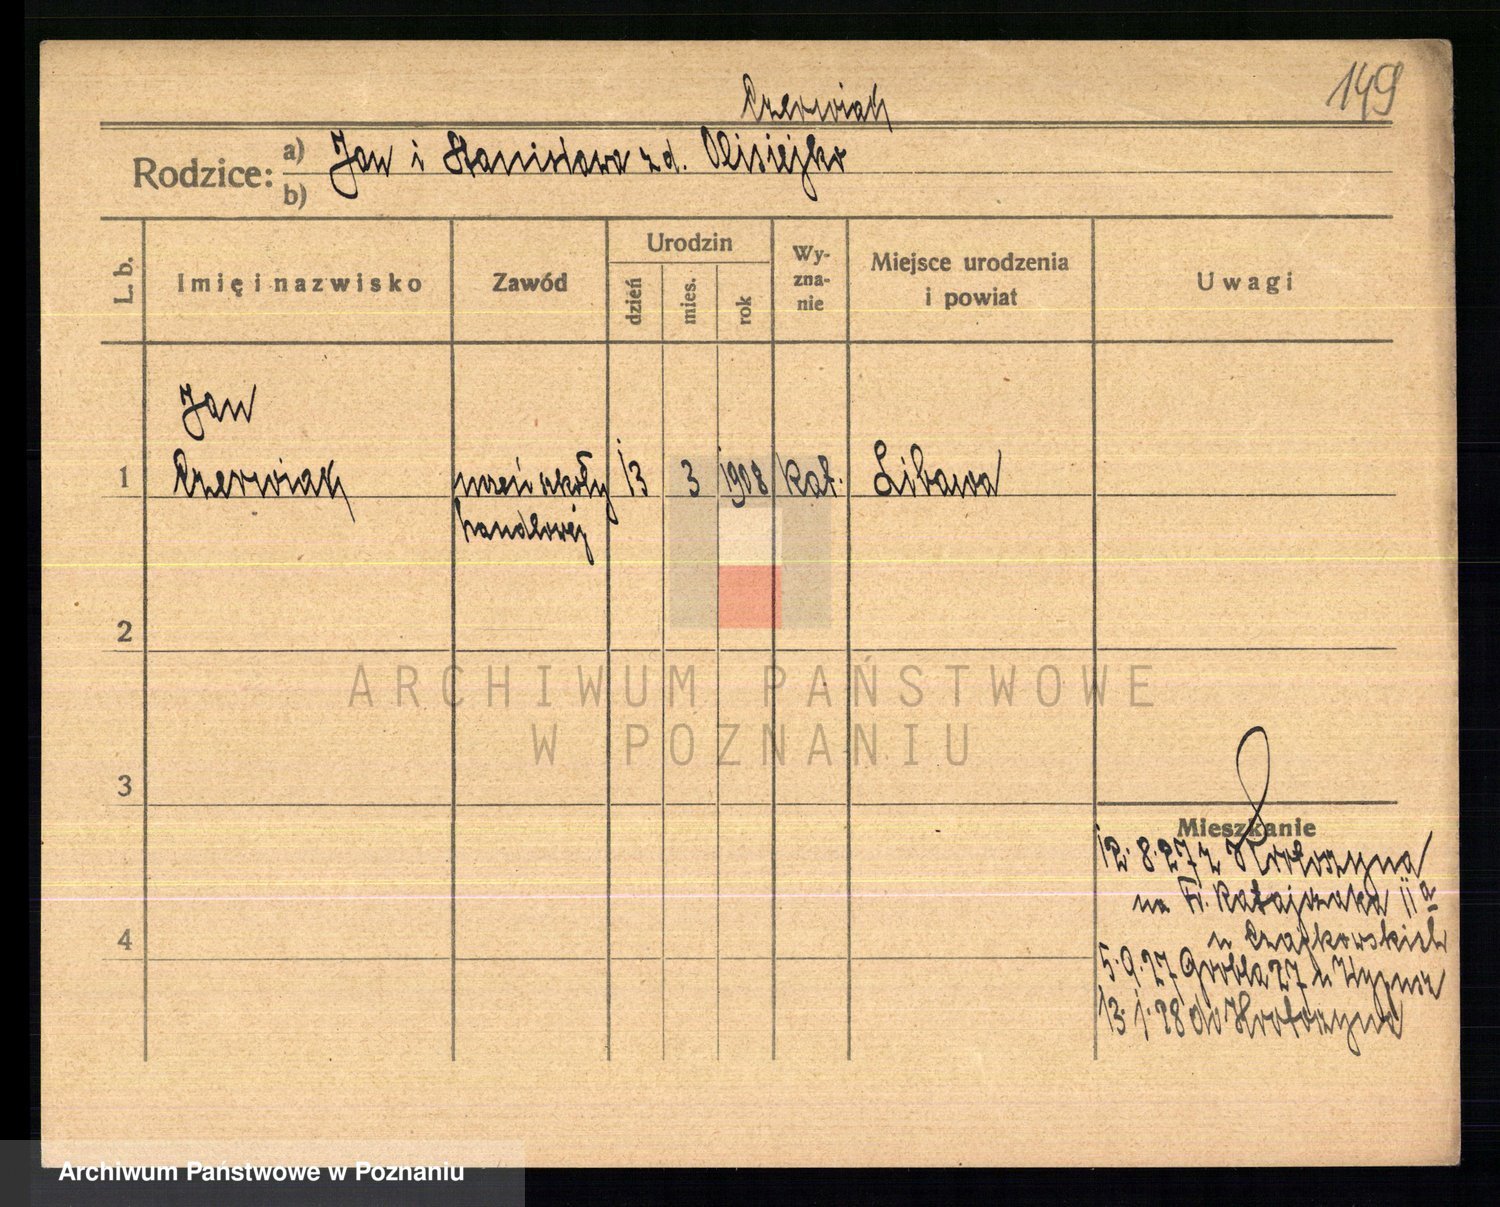 149
Czerwiak
Rodzice: a) Jan i Stanisława z d. Olisiejko
b)
L. b.
Imię i nazwisko
Zawód
Urodzin
dzień
mies.
rok
Wy-
zna-
nie
Miejsce urodzenia
i powiat
Uwagi
Jan
1 Czerwiak uczeń szkoły 13 3 1908 kat. Libawa
handlowej
2
ARCHIWUM PAŃSTWOWE
W POZNANIU
3
Mieszkanie
12.8.27 z Krotoszyna
na Fr. Ratajczaka 11a
u Czajkowskich
4
5.9.27 Grobla 27 u
13.1.28 do Krotoszyna
Archiwum Państwowe w Poznaniu